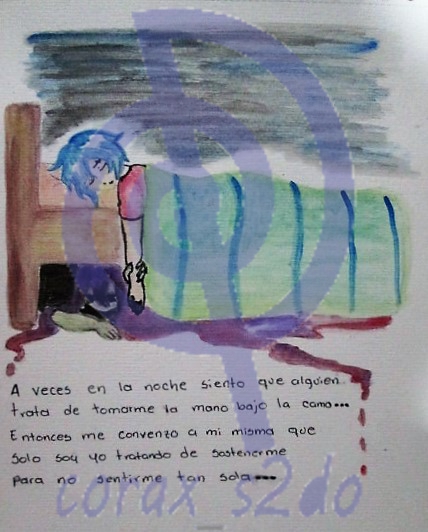 A veces en la noche siento que alguien..
trata de tomarme la mano bajo la cama...
Entonces me convenzo a mi misma que
Solo soy yo tratando de sostenerme
para no sentirme tan sola...
corax s2do